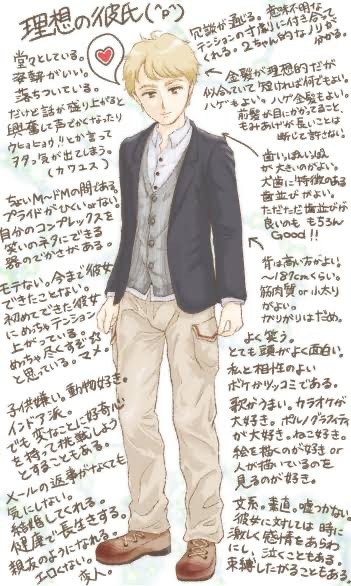 理想の彼氏(^p^)
堂々としている。
姿勢がいい。
落ちついている。
だけど話が盛り上がると
興奮して声でかくなったり
ウヒョヒョウ!!とか言って
ヲタッ気が出てしまう。
(カワユス)
ちょいM〜ドMの間である。
プライドがひくい or ない!
自分のコンプレックスを
笑いのネタにできる
器のでかさがある。
モテない。今まで彼女
できたことない。
初めてできた彼女
にめっちゃテンション
上がっている。
めっちゃ尽くするぞ☆
と思っている。マメ。
子供嫌い。動物好き。
インドア派。
でも変なことに好奇心
を持って挑戦しよう
とすることもある。
メールの返事がなくても
気にしない。
結婚してくれる。
健康で長生きする。
親友のようになれる。
エロくない。
友人。
冗談が通じる。意味不明な
テンションの寸劇に付き合って
くれる。2ちゃん的なノリが
分かる。
金髪が理想的だが
似合っていて短ければ何でもよい。
ハゲもよい。ハゲ金髪もよい。
前髪が目にかかってること、
もみあげが長いことは
断じて許さない!
歯はいっぽんいっぽん
が大きいのがよい。
犬歯に特徴のある
歯並びがよい。
ただただ歯並びが
良いのも もちろん
Good!!
背は高い方がよい!
〜187cmくらい。
筋肉質 or 小太り
がよい。
がりがりはだめ。
よく笑う。
とても頭がよく面白い。
私と相性のよい
ボケかツッコミである。
歌がうまい。カラオケが
大好き。ポルノグラフィティ
が大好き。ねこ好き。
絵を描くのが好き or
人が描いているのを
見るのが好き。
文系。素直。嘘つかない。
彼女に対しては 時に
激しく感情をあらわ
にし、泣くこともある。
束縛したがることもある